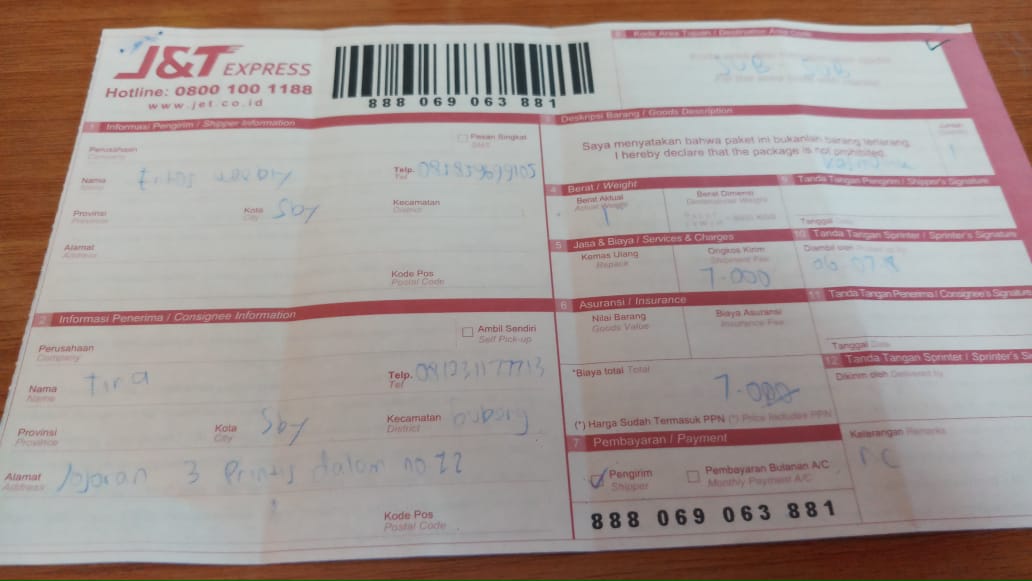 J&T EXPRESS
Hotline: 0800 100 1188
www.jet.co.id
888 069 063 881
8 Kode Area Tujuan / Destination Area Code
SUB - SUB
1 Informasi Pengirim / Shipper Information
Perusahaan
Company
Pesan Singkat
SMS
Nama
Name
Telp.
Tel
Provinsi
Province
Kota
City
Sby
Kecamatan
District
Alamat
Address
Kode Pos
Postal Code
2 Informasi Penerima / Consignee Information
Perusahaan
Company
Ambil Sendiri
Self Pick-up
Nama
Name
Tira
Telp.
Tel
Provinsi
Province
Kota
City
Sby
Kecamatan
District
Alamat
Address
3 dalam no 22
Kode Pos
Postal Code
3 Deskripsi Barang / Goods Description
Saya menyatakan bahwa paket ini bukanlah barang terlarang.
I hereby declare that the package is not prohibited.
Jumlah
1
4 Berat / Weight
Berat Aktual
Actual Weight
1
Berat Dimensi
Dimensional Weight
5 Jasa & Biaya / Services & Charges
Kemas Ulang
Repack
Ongkos Kirim
Shipment Fee
7.000
6 Asuransi / Insurance
Nilai Barang
Goods Value
Biaya Asuransi
Insurance Fee
*Biaya total Total
7.000
(*) Harga Sudah Termasuk PPN (*) Price Includes PPN
7 Pembayaran / Payment
Pengirim
Shipper
Pembayaran Bulanan A/C
Monthly Payment A/C
888 069 063 881
9 Tanda Tangan Pengirim / Shipper's Signature
Tanggal Date
10 Tanda Tangan Sprinter / Sprinter's Signature
Diambil oleh
06-07-8
11 Tanda Tangan Penerima / Consignee's Signature
Tanggal Date
12 Tanda Tangan Sprinter / Sprinter's
Dikirim oleh Delivered by
Keterangan Remarks